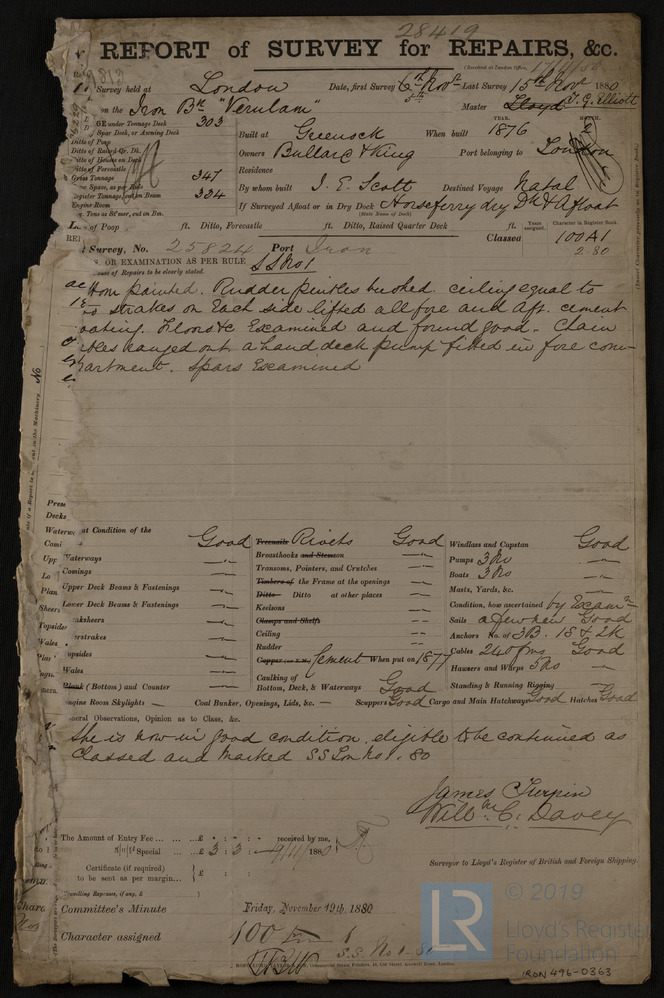 28419
REPORT of SURVEY for REPAIRS, &c.
(Received at London Office,
Survey held at London Date, first Survey 6th Novr Last Survey 15th Novr 1880
on the Iron Bk "Verulam" Master Lloyd T. G. Elliott
GE under Tonnage Deck 303
Spar Deck, or Awning Deck
Ditto of Poop
Ditto of Raised Qr. Dk.
Ditto of Houses on Deck
Ditto of Forecastle
Gross Tonnage 347
Register Tonnage, cut on Beam 334
Engine Room
YEAR. MONTH.
Built at Greenock When built 1876
Owners Bullard & King Port belonging to London
Residence
By whom built J. E. Scott Destined Voyage Natal
If Surveyed Afloat or in Dry Dock Horseferry dry Dk & Afloat
(State Name of Dock)
of Poop ft. Ditto, Forecastle ft. Ditto, Raised Quarter Deck ft.
Years assigned. Character in Register Book.
Classed 100A1
2.80
t Survey, No. 25824 Port Iron
OR EXAMINATION AS PER RULE SS No 1
of Repairs to be clearly stated.
ttom painted. Rudder pintles bushed. ceiling equal to
strakes on Each side lifted all fore and aft. cement
oating. Floors &c Examined and found good. Chain
bles ranged out a hand deck pump fitted in fore com-
partment. Spars Examined
nt Condition of the
Good
Waterways "
Comings "
Upper Deck Beams & Fastenings "
Lower Deck Beams & Fastenings "
"
"
Topsides "
Wales "
Plank (Bottom) and Counter "
Engine Room Skylights —
Treenails Rivets Good
Breasthooks and Stemson "
Transoms, Pointers, and Crutches "
Timbers of the Frame at the openings "
Ditto Ditto at other places "
Keelsons "
Clamps and Shelfs "
Ceiling "
Rudder "
Copper Cement When put on 1877
Caulking of
Bottom, Deck, & Waterways Good
Coal Bunker, Openings, Lids, &c. — Scuppers Good Cargo and Main Hatchways Good Hatches Good
Windlass and Capstan Good
Pumps 3 No "
Boats 3 No "
Masts, Yards, &c. "
Condition, how ascertained by Examn
Sails a few new Good
Anchors No. of 3B. 1S & 2K
Cables 240 fms Good
Hawsers and Warps 5 No "
Standing & Running Rigging "
General Observations, Opinion as to Class, &c.
She is now in good condition, eligible to be continued as
Classed and marked SS Lon No 1. 80
James Turpin
Willm C. Davey
Surveyor to Lloyd's Register of British and Foreign Shipping.
The Amount of Entry Fee ... ... £ : : received by me,
Special ... ... £ 3 : 3 : 1880
Certificate (if required)
to be sent as per margin... £
Committee's Minute Friday, November 19th, 1880
Character assigned 100 1
S.S. No 1 - 80
LR
© 2019
Lloyd's Register
Foundation
IRON 496-0363